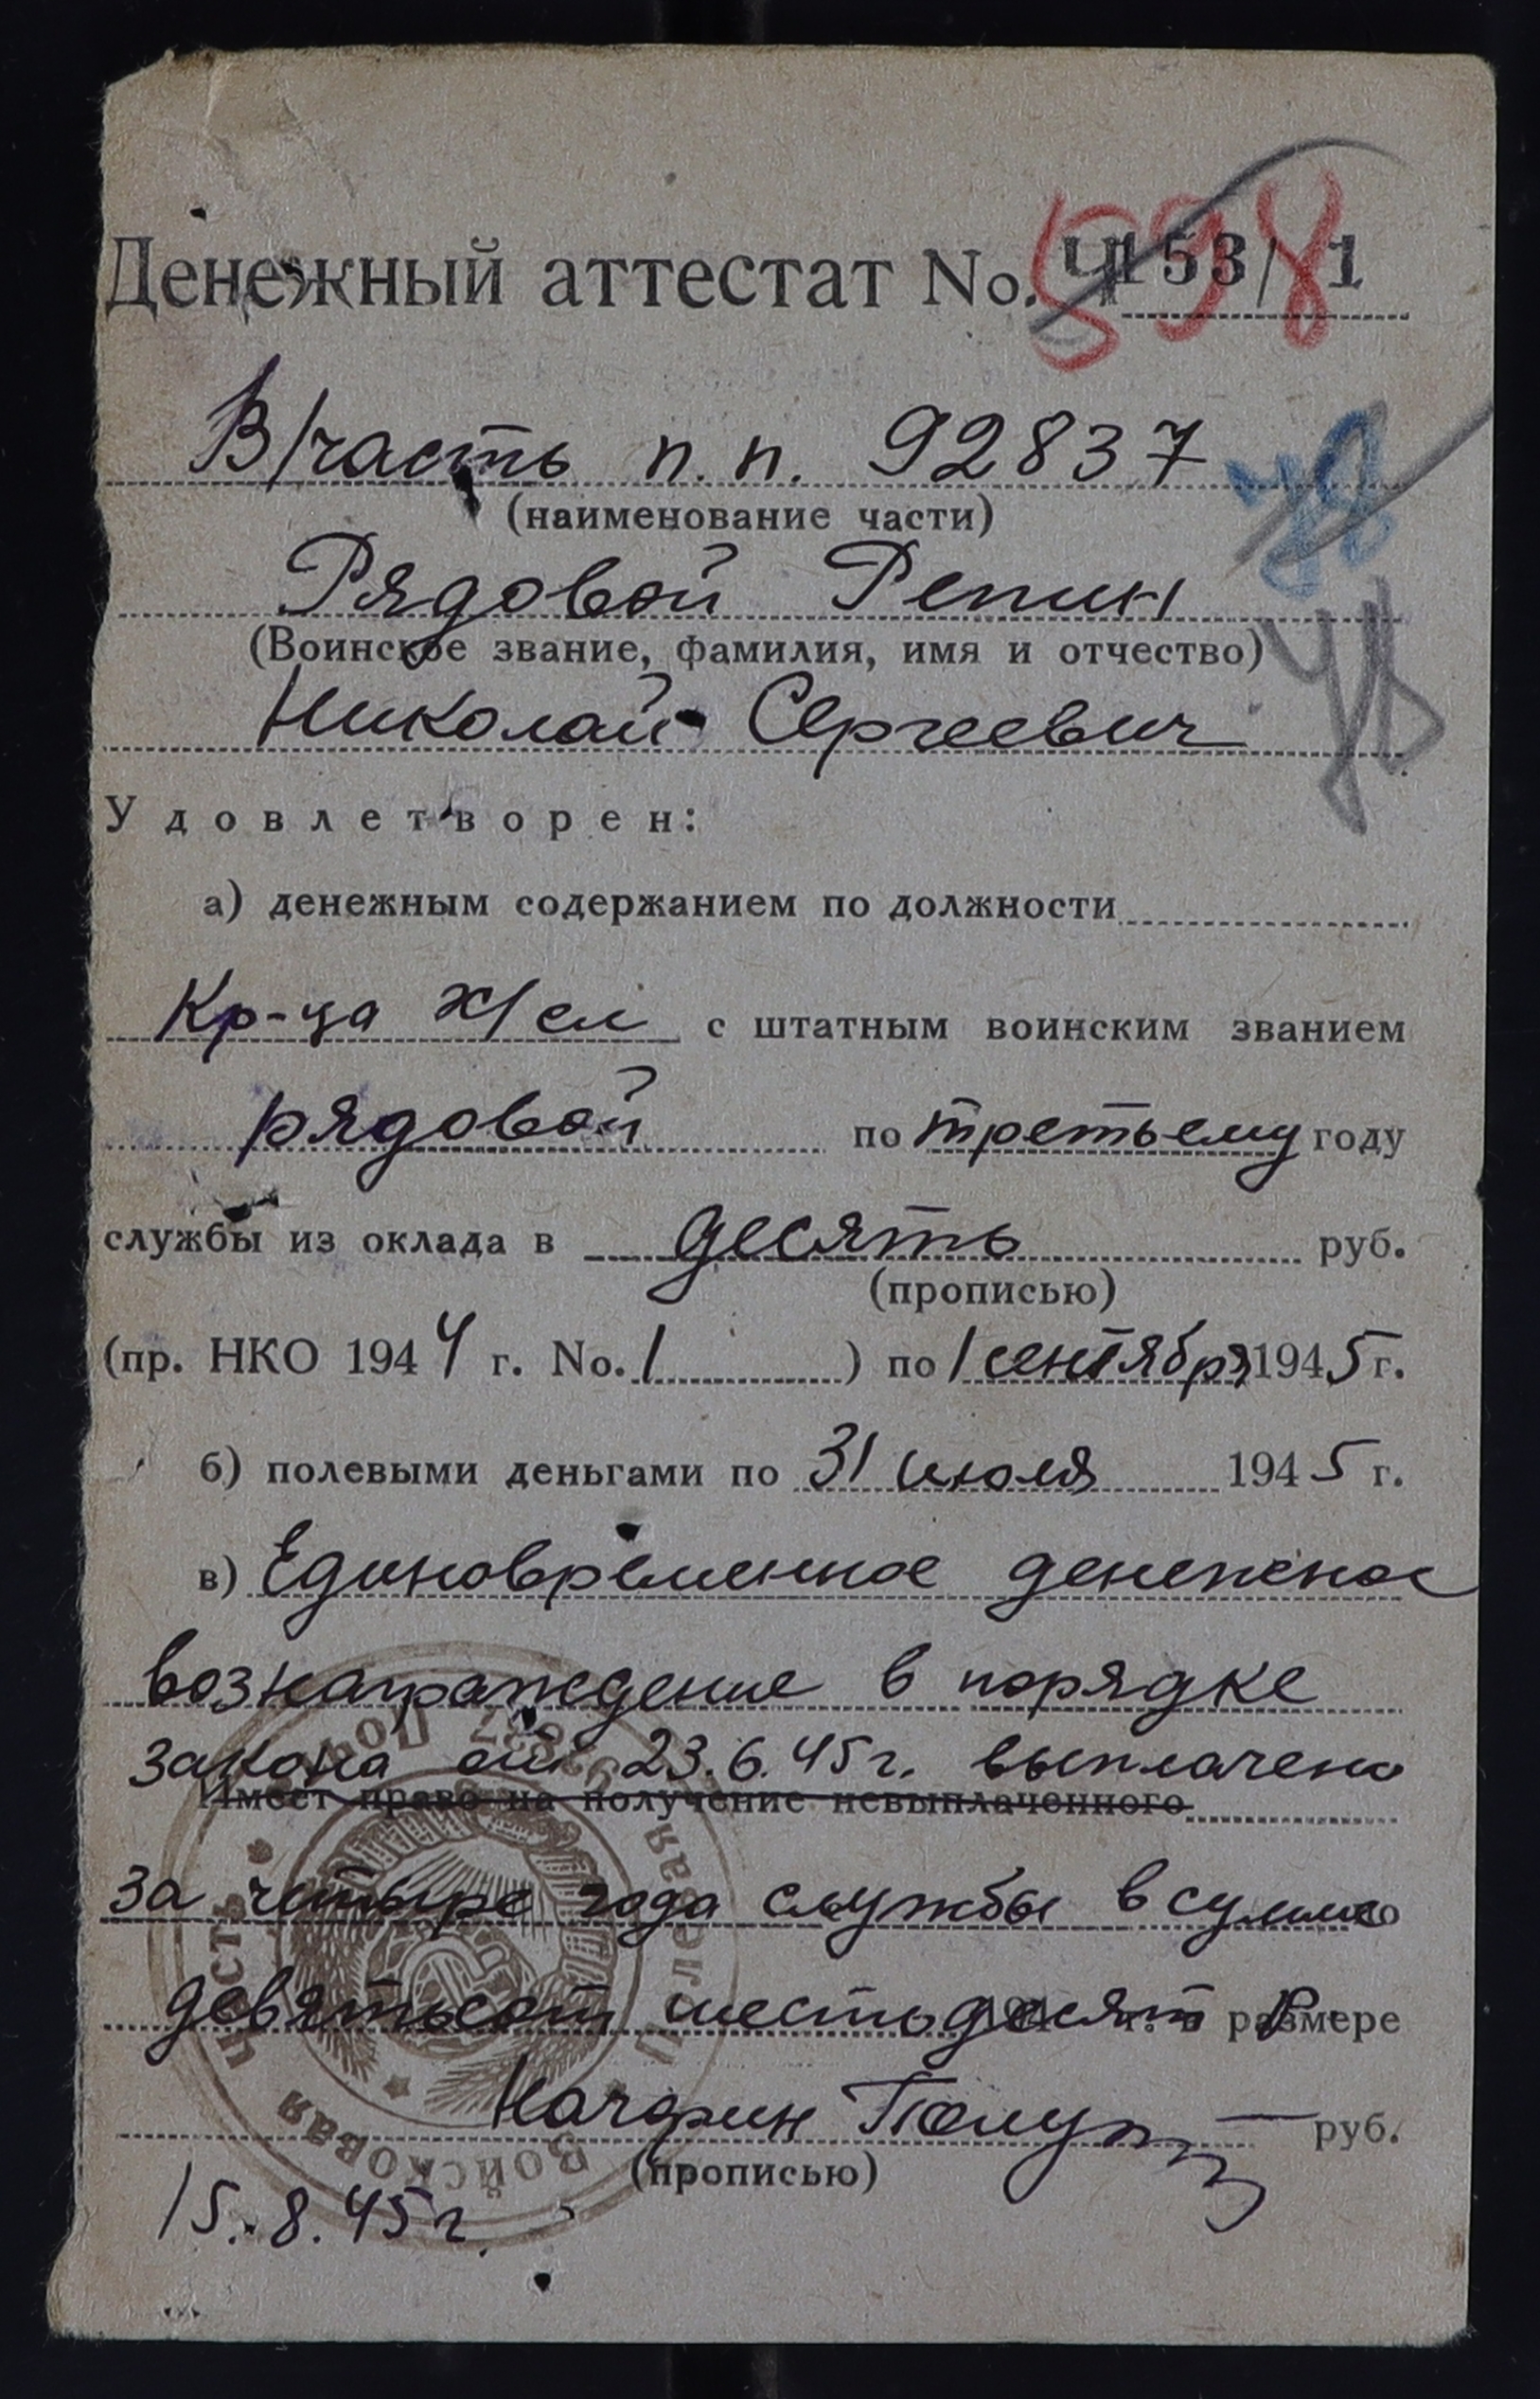 Денежный аттестат No. Ч153/1
598
В/часть п.п. 92837
(наименование части)
Рядовой Репин
(Воинское звание, фамилия, имя и отчество)
Николай Сергеевич
Удовлетворен:
а) денежным содержанием по должности
Кр-ца х/сл с штатным воинским званием
рядовой по третьему году
службы из оклада в десять руб.
(прописью)
(пр. НКО 1944 г. No. 1 ) по 1 сентября 1945 г.
б) полевыми деньгами по 31 июля 1945 г.
в) Единовременное денежное
вознаграждение в порядке
закона от 23.6.45г. выплачено
Имеет право на получение невыплаченного
за четыре года службы в сумме
девятьсот шестьдесят р. размере
Начфин руб.
(прописью)
15.8.45г.
Войсковая часть Полевая почта 92837